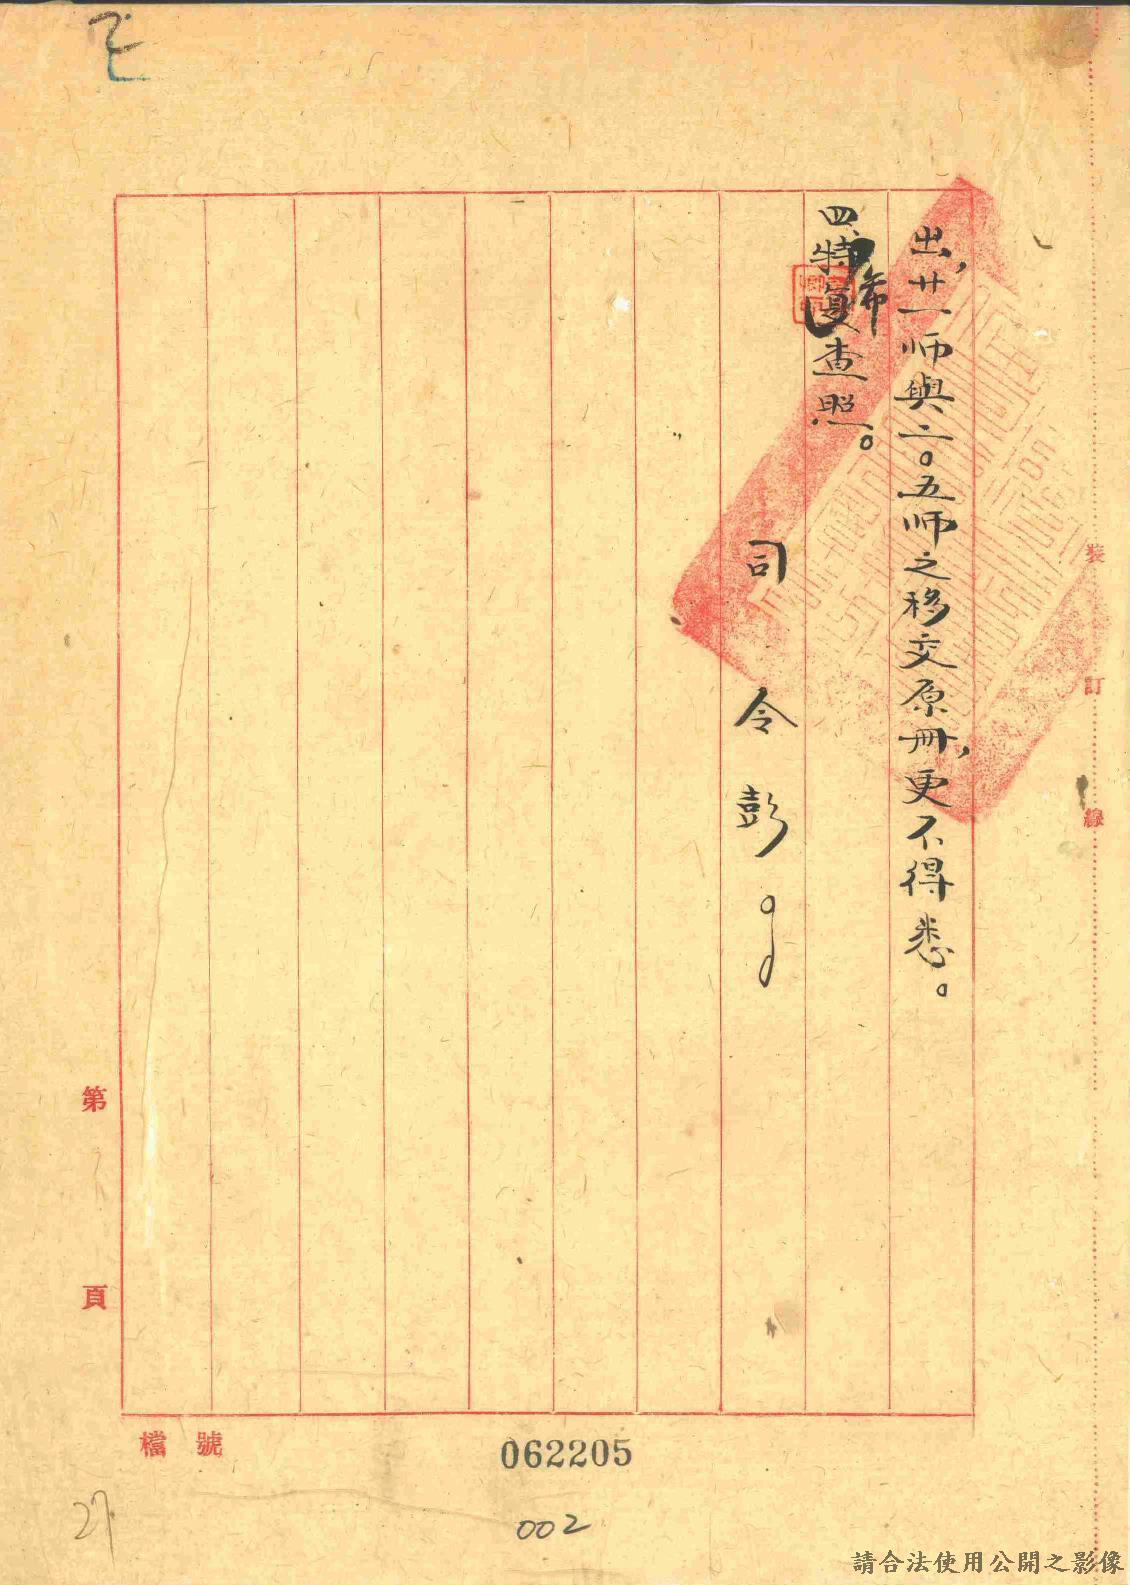 出,廿一师與二〇五师之移交原冊,更不得悉。
四、特復希查照。
司令彭
裝
訂
線
第
頁
檔號
062205
002
27
請合法使用公開之影像